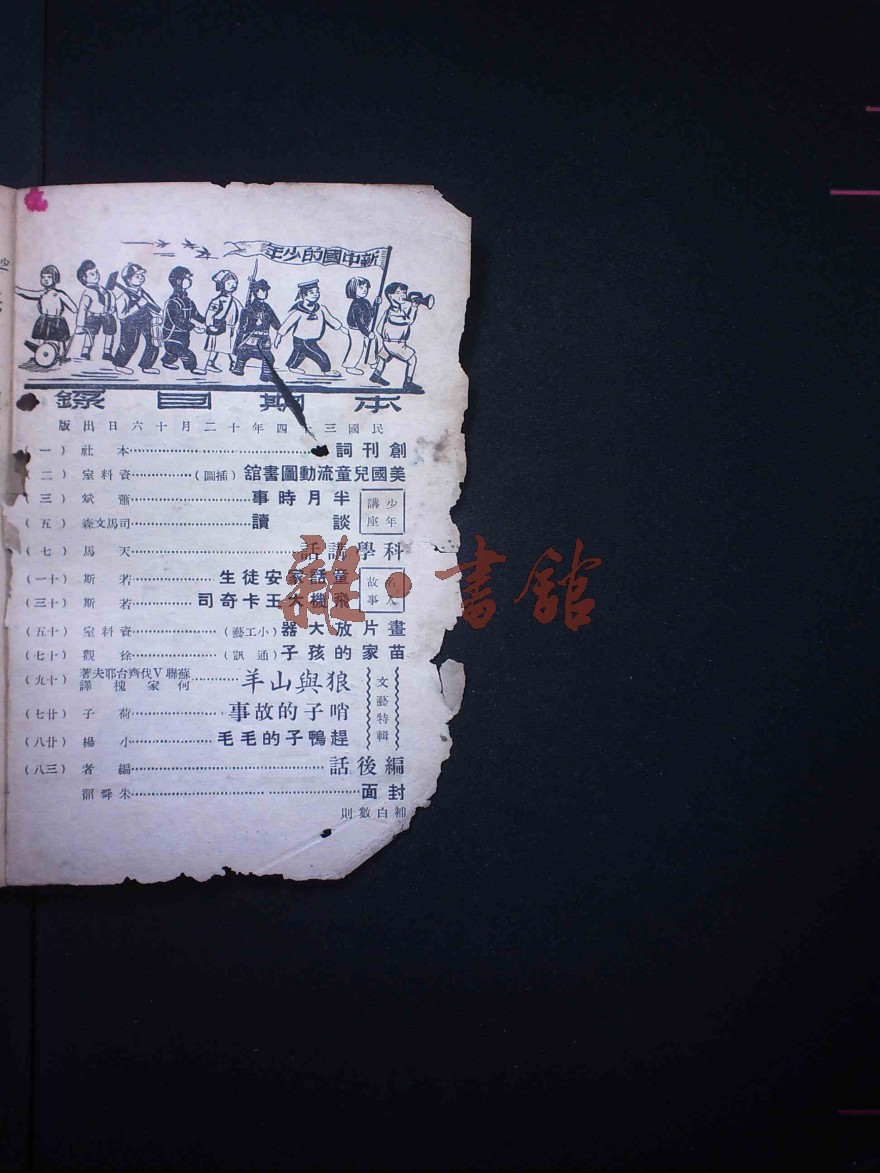 新中國的少年
本期目錄
民國三十四年十二月十六日出版
創刊詞……本社（一）
美國兒童流動圖書舘（插圖）……資料室（二）
少年講座
半月時事……蕭斌（三）
談讀……司馬文森（五）
科學講話……天馬（七）
名人故事
童話家安徒生……若斯（十一）
飛機大王卡奇司……若斯（十三）
畫片放大器（小工藝）……資料室（十五）
苗家的孩子（通訊）……徐觀（十七）
文藝特輯
狼與山羊……蘇聯V伐齊台耶夫著 何家槐譯（十九）
哨子的故事……荷子（廿七）
趕鴨子的毛毛……小楊（廿八）
編後話……編者（三八）
封面……朱舜韶
補白數則
雜·書舘